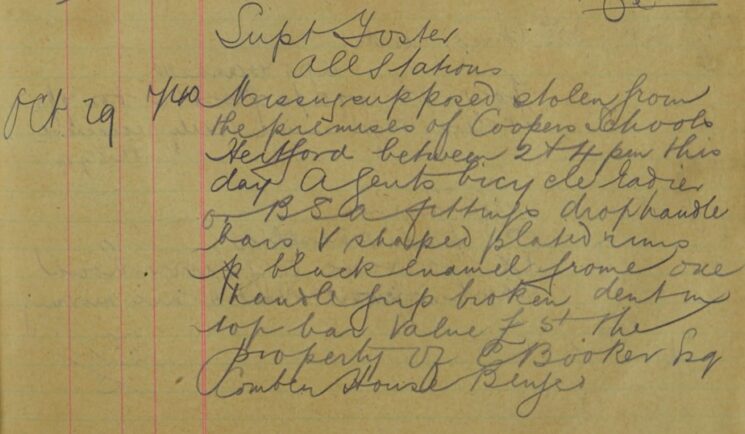 Supt Foster
All Stations
Oct 29 7/40 Missing supposed stolen from
the premises of Coopers Schools
Hertford between 2 & 4 pm this
day A gents bicycle
BSA fittings drop handle
bars V shaped plated rims
black enamel frame one
handle grip broken dent in
top bar Value £5 the
property of C Booker Esq
House Bengeo